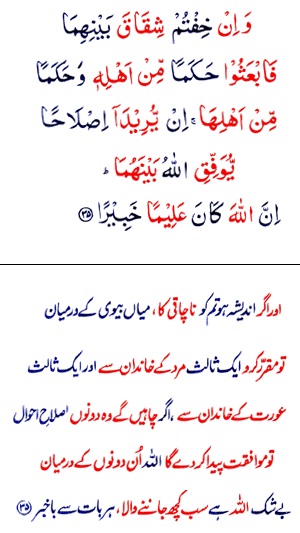 وَاِنْ خِفْتُمْ شِقَاقَ بَيْنِهِمَا
فَابْعَثُوْا حَكَمًا مِّنْ اَهْلِهٖ وَحَكَمًا
مِّنْ اَهْلِهَا ۚ اِنْ يُّرِيْدَآ اِصْلَاحًا
يُّوَفِّقِ اللّٰهُ بَيْنَهُمَا ؕ
اِنَّ اللّٰهَ كَانَ عَلِيْمًا خَبِيْرًا ﴿۳۵﴾
اور اگر اندیشہ ہو تم کو ناچاقی کا، میاں بیوی کے درمیان
تو مقرّر کرو ایک ثالث مرد کے خاندان سے اور ایک ثالث
عورت کے خاندان سے، اگر چاہیں گے وہ دونوں اصلاحِ احوال
تو موافقت پیدا کر دے گا اللہ اُن دونوں کے درمیان
بے شک اللہ ہے سب کچھ جاننے والا، ہر بات سے باخبر ﴿۳۵﴾